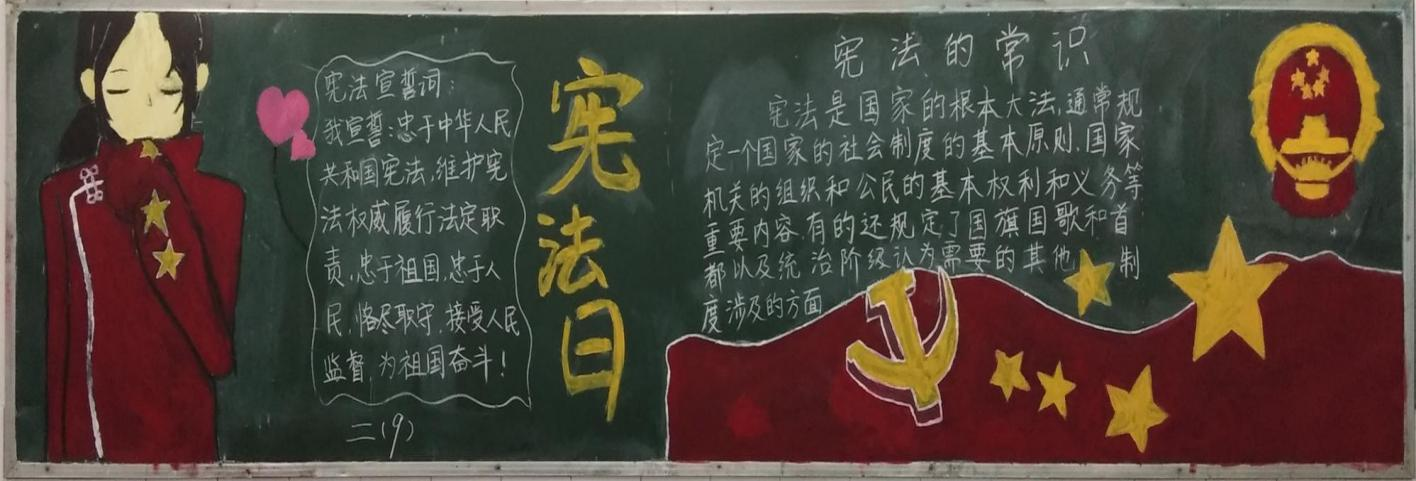 宪法宣誓词:
我宣誓:忠于中华人民
共和国宪法,维护宪
法权威履行法定职
责,忠于祖国,忠于人
民,恪尽职守,接受人民
监督,为祖国奋斗!
二(9)
宪法日
宪法的常识
宪法是国家的根本大法,通常规
定一个国家的社会制度的基本原则、国家
机关的组织和公民的基本权利和义务等
重要内容,有的还规定了国旗国歌和首
都以及统治阶级认为需要的其他制
度涉及的方面